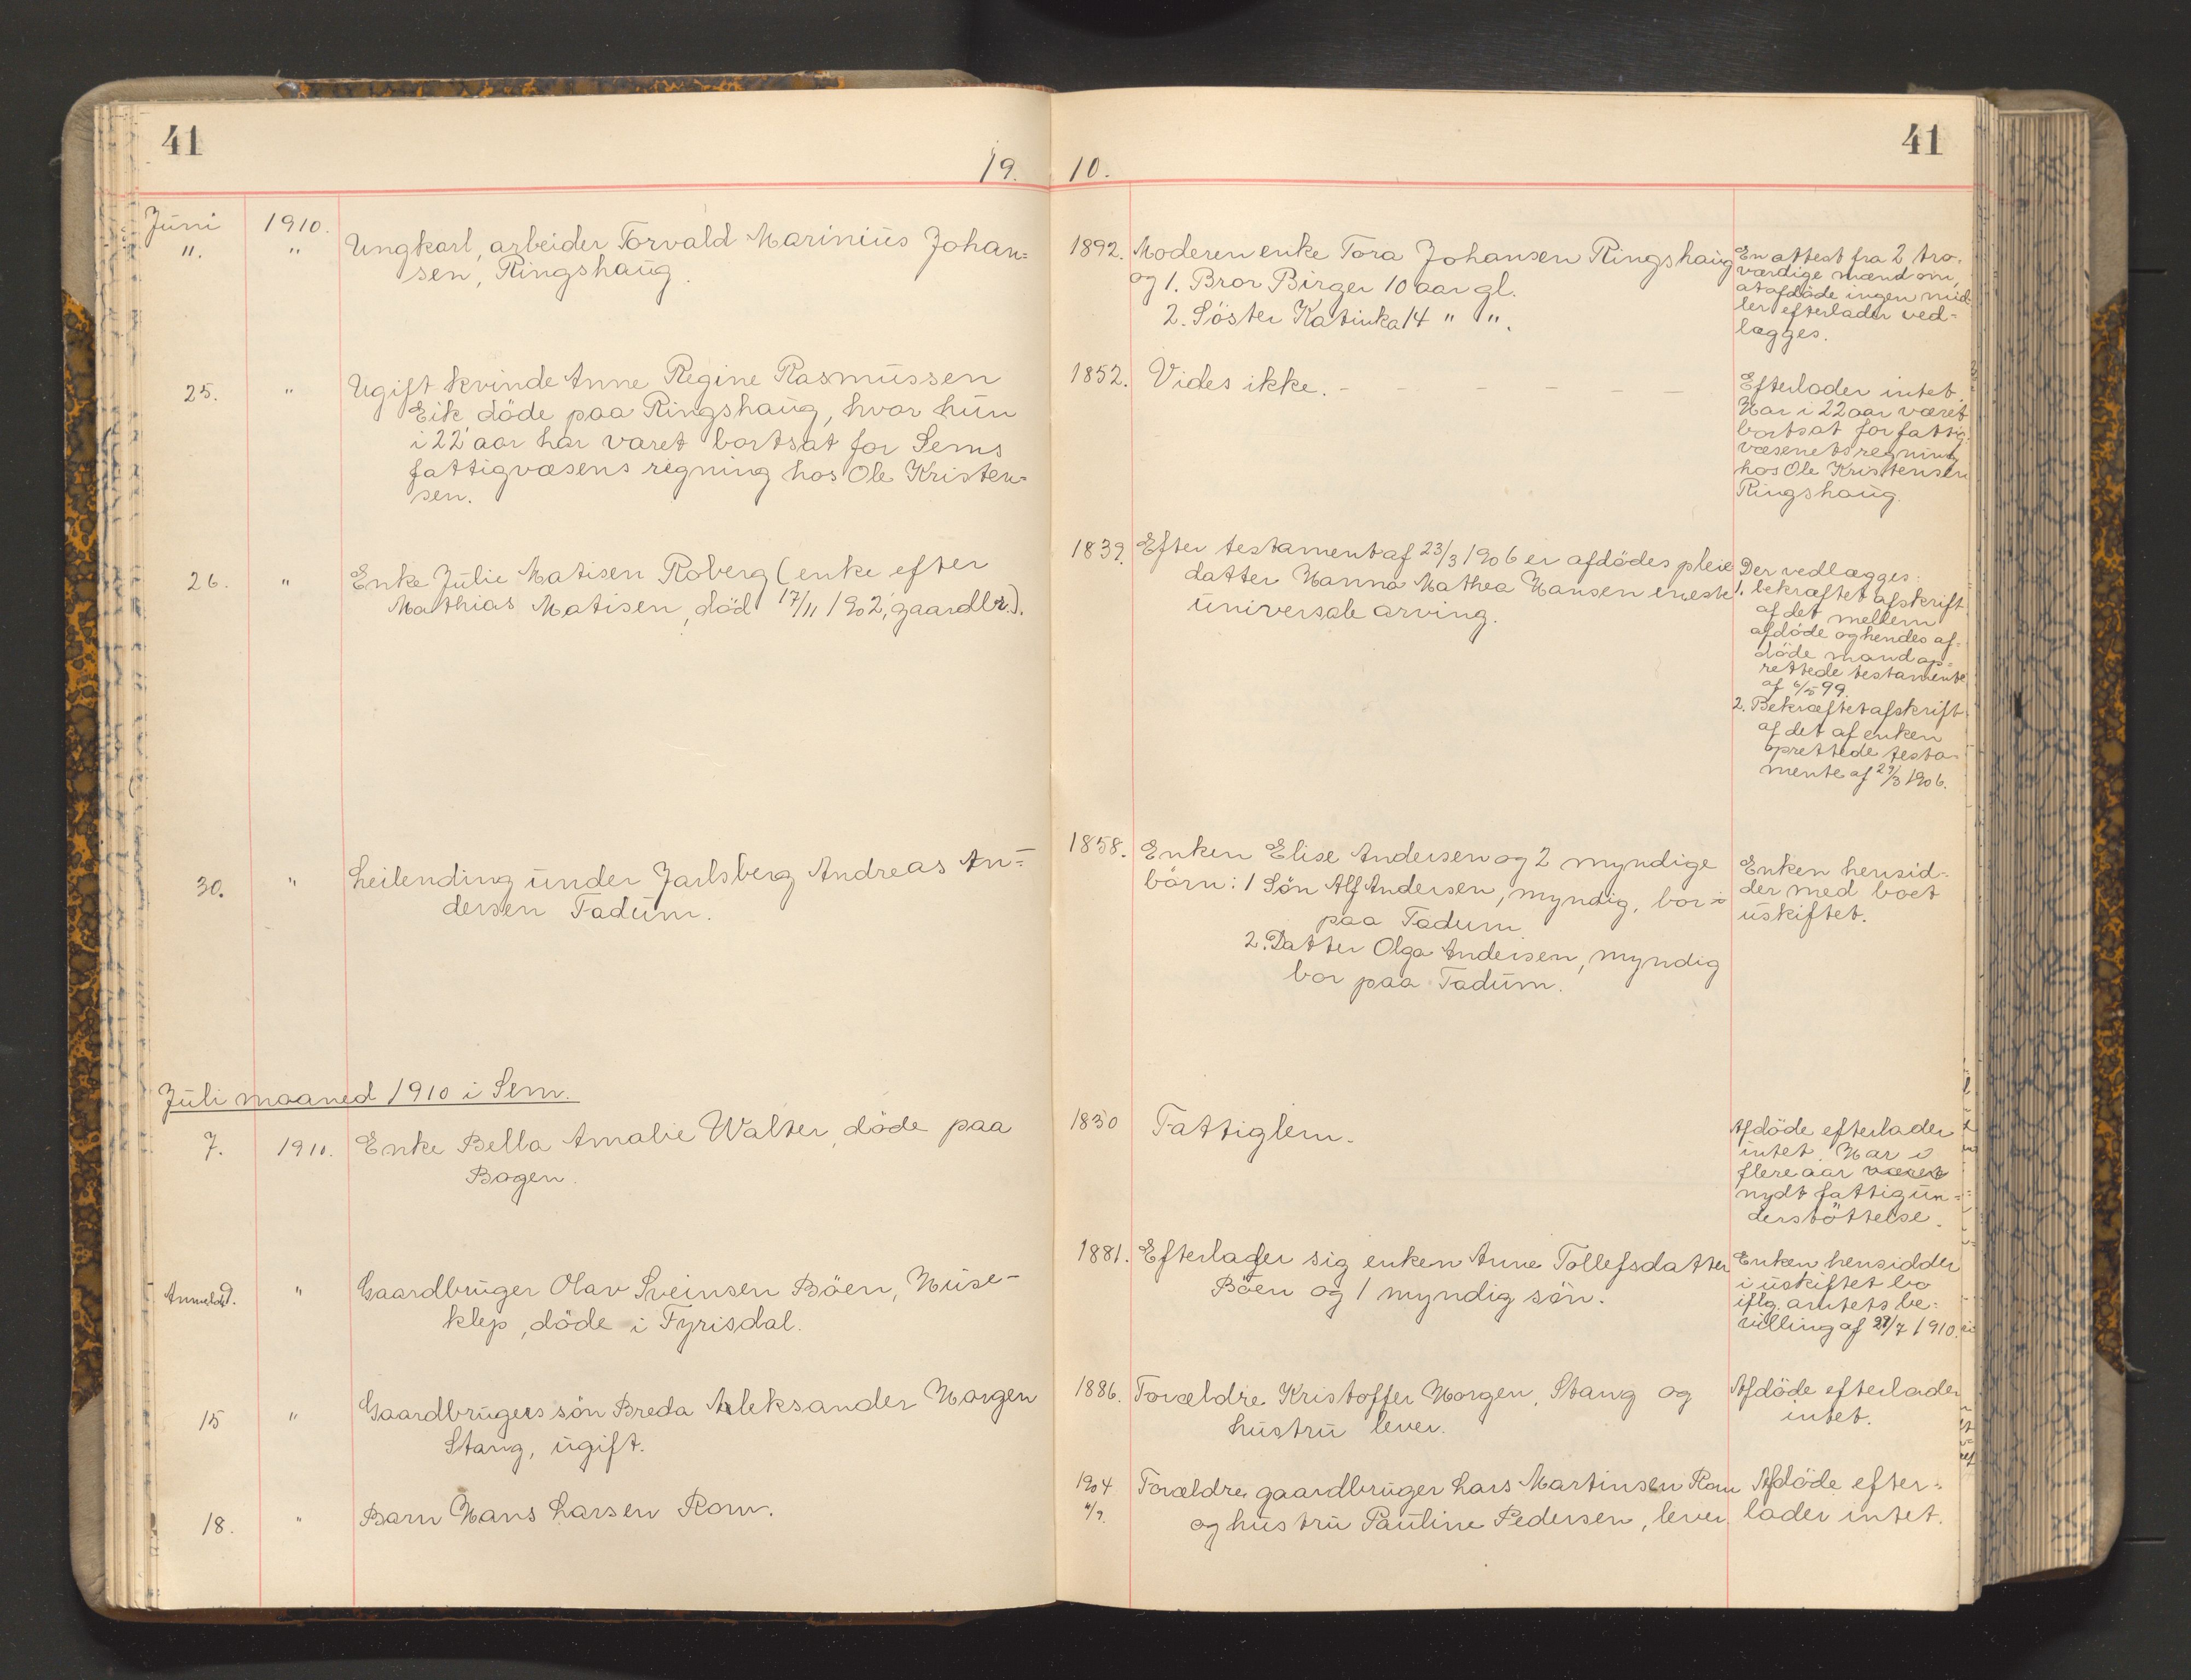 41
19.
Juni 1910.
11. " Ungkarl, arbeider Torvald Marinius Johan=
sen, Ringshaug.
25. " Ugift kvinde Anne Regine Rasmussen
Eik döde paa Ringshaug, hvor hun
i 22 aar har været bortsat for Sems
fattigvæsens regning hos Ole Kristen=
sen.
26. " Enke Julie Matisen Roberg (enke efter
Mathias Matisen, död 17/11 1902, gaardbr.).
30. " Leilending under Jarlsberg Andreas An=
dersen Fadum.
Juli maaned 1910 i Sem.
7. 1910. Enke Bella Amalie Walter, döde paa
Bogen.
Anmeldt. " Gaardbruger Olav Sveinsen Böen, Huse-
klep, döde i Fyrisdal.
15 " Gaardbrugers sön Breda Aleksander Horgen
Stang, ugift.
18. " Barn Hans Larsen Rom.
41
10.
1892. Moderen enke Tora Johansen Ringshaug
og 1. Bror Birger 10 aar gl.
2. Söster Katinka 14 " ".
En attest fra 2 tro-
værdige mænd om,
at afdöde ingen mid-
ler efterlader ved=
lægges.
1852. Vides ikke. - - - - - -
Efterlader intet.
Har i 22 aar været
bortsat for fattig-
væsenets regning
hos Ole Kristensen
Ringshaug.
1839. Efter testament af 23/3 1906 er afdödes pleie
datter Hanna Mathea Hansen eneste
universale arving.
Der vedlægges:
1. bekræftet afskrift
af det mellem
afdöde og hendes af=
döde mand op=
rettede testamente
af 6/5 99.
2. Bekræftet afskrift
af det af enken
oprettede testa-
mente af 29/3 1906.
1858. Enken Elise Andersen og 2 myndige
börn: 1 Sön Alf Andersen, myndig, bor
paa Fadum
2. Datter Olga Andersen, myndig
bor paa Fadum.
Enken hensid-
der med boet
uskiftet.
1830 Fattiglem.
Afdöde efterlader
intet. Har i
flere aar været
nydt fattigun=
derstöttelse.
1881. Efterlader sig enken Anne Tollefsdatter
Böen og 1 myndig sön.
Enken hensidder
i uskiftet bo
iflg. amtets be=
villing af 29/7 1910.
1886. Forældre Kristoffer Horgen, Stang og
hustru lever.
Afdöde efterlader
intet.
1904 Forældre gaardbruger Lars Martinsen Rom
4/9. og hustru Pauline Pedersen, lever
Afdöde efter=
lader intet.